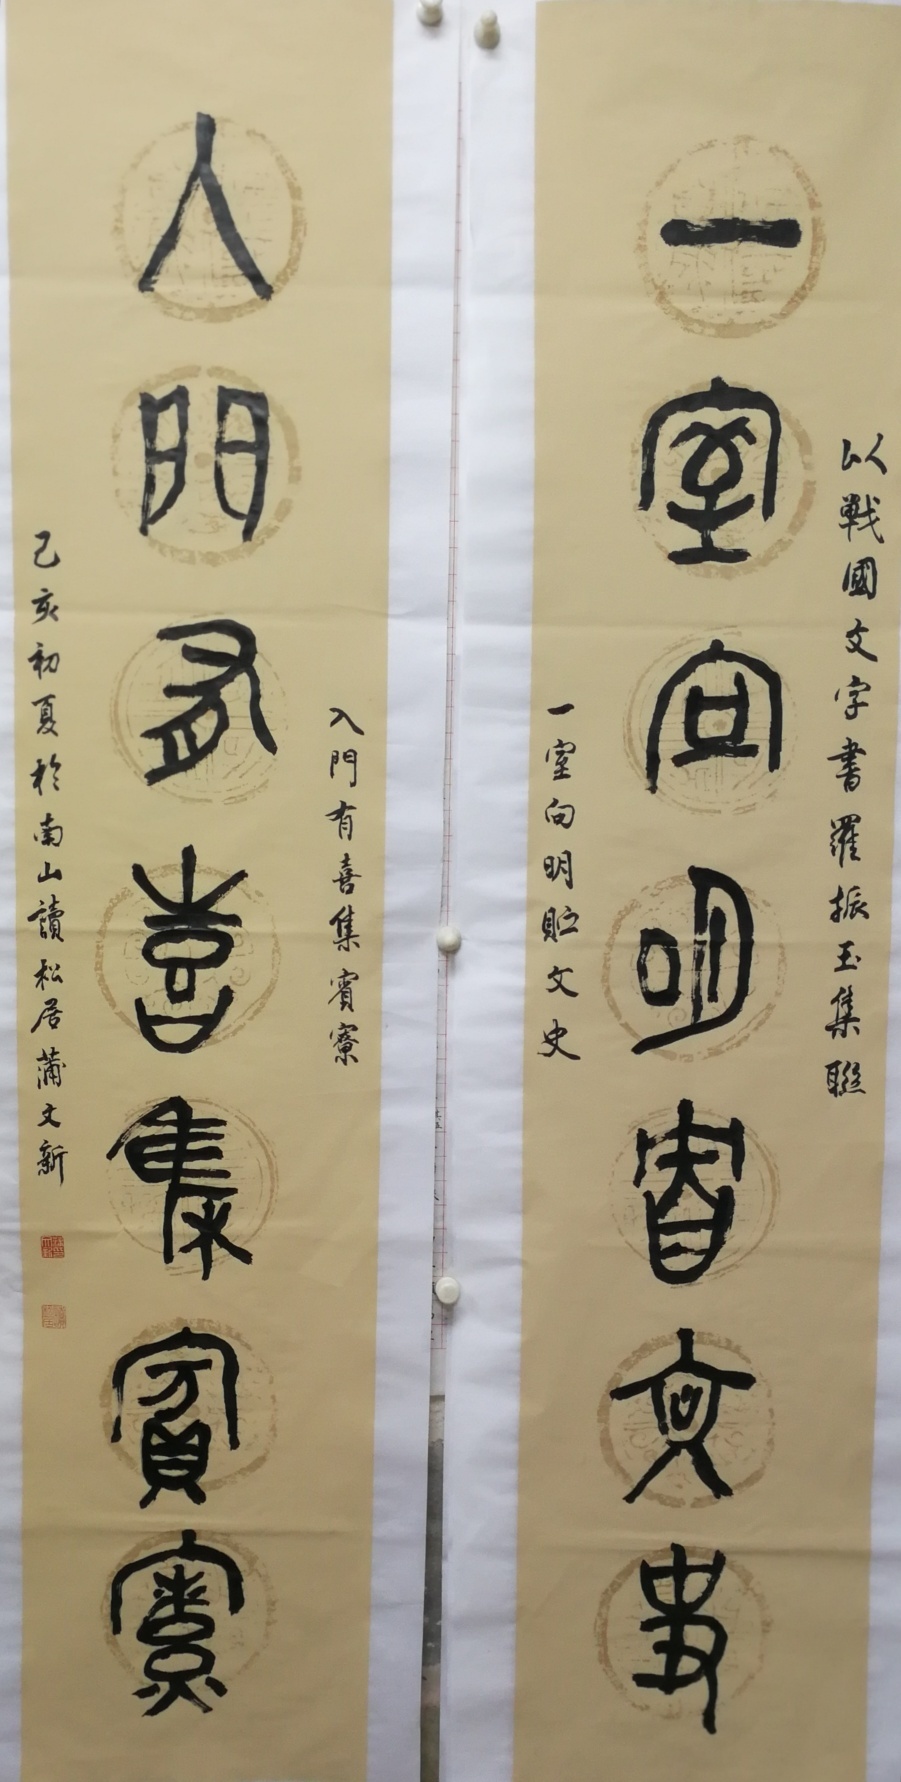 以戰國文字書羅振玉集聯
一室向明貯文史
一室向明貯文史
入門有喜集賓寮
入門有喜集賓寮
己亥初夏於南山讀松居蒲文新